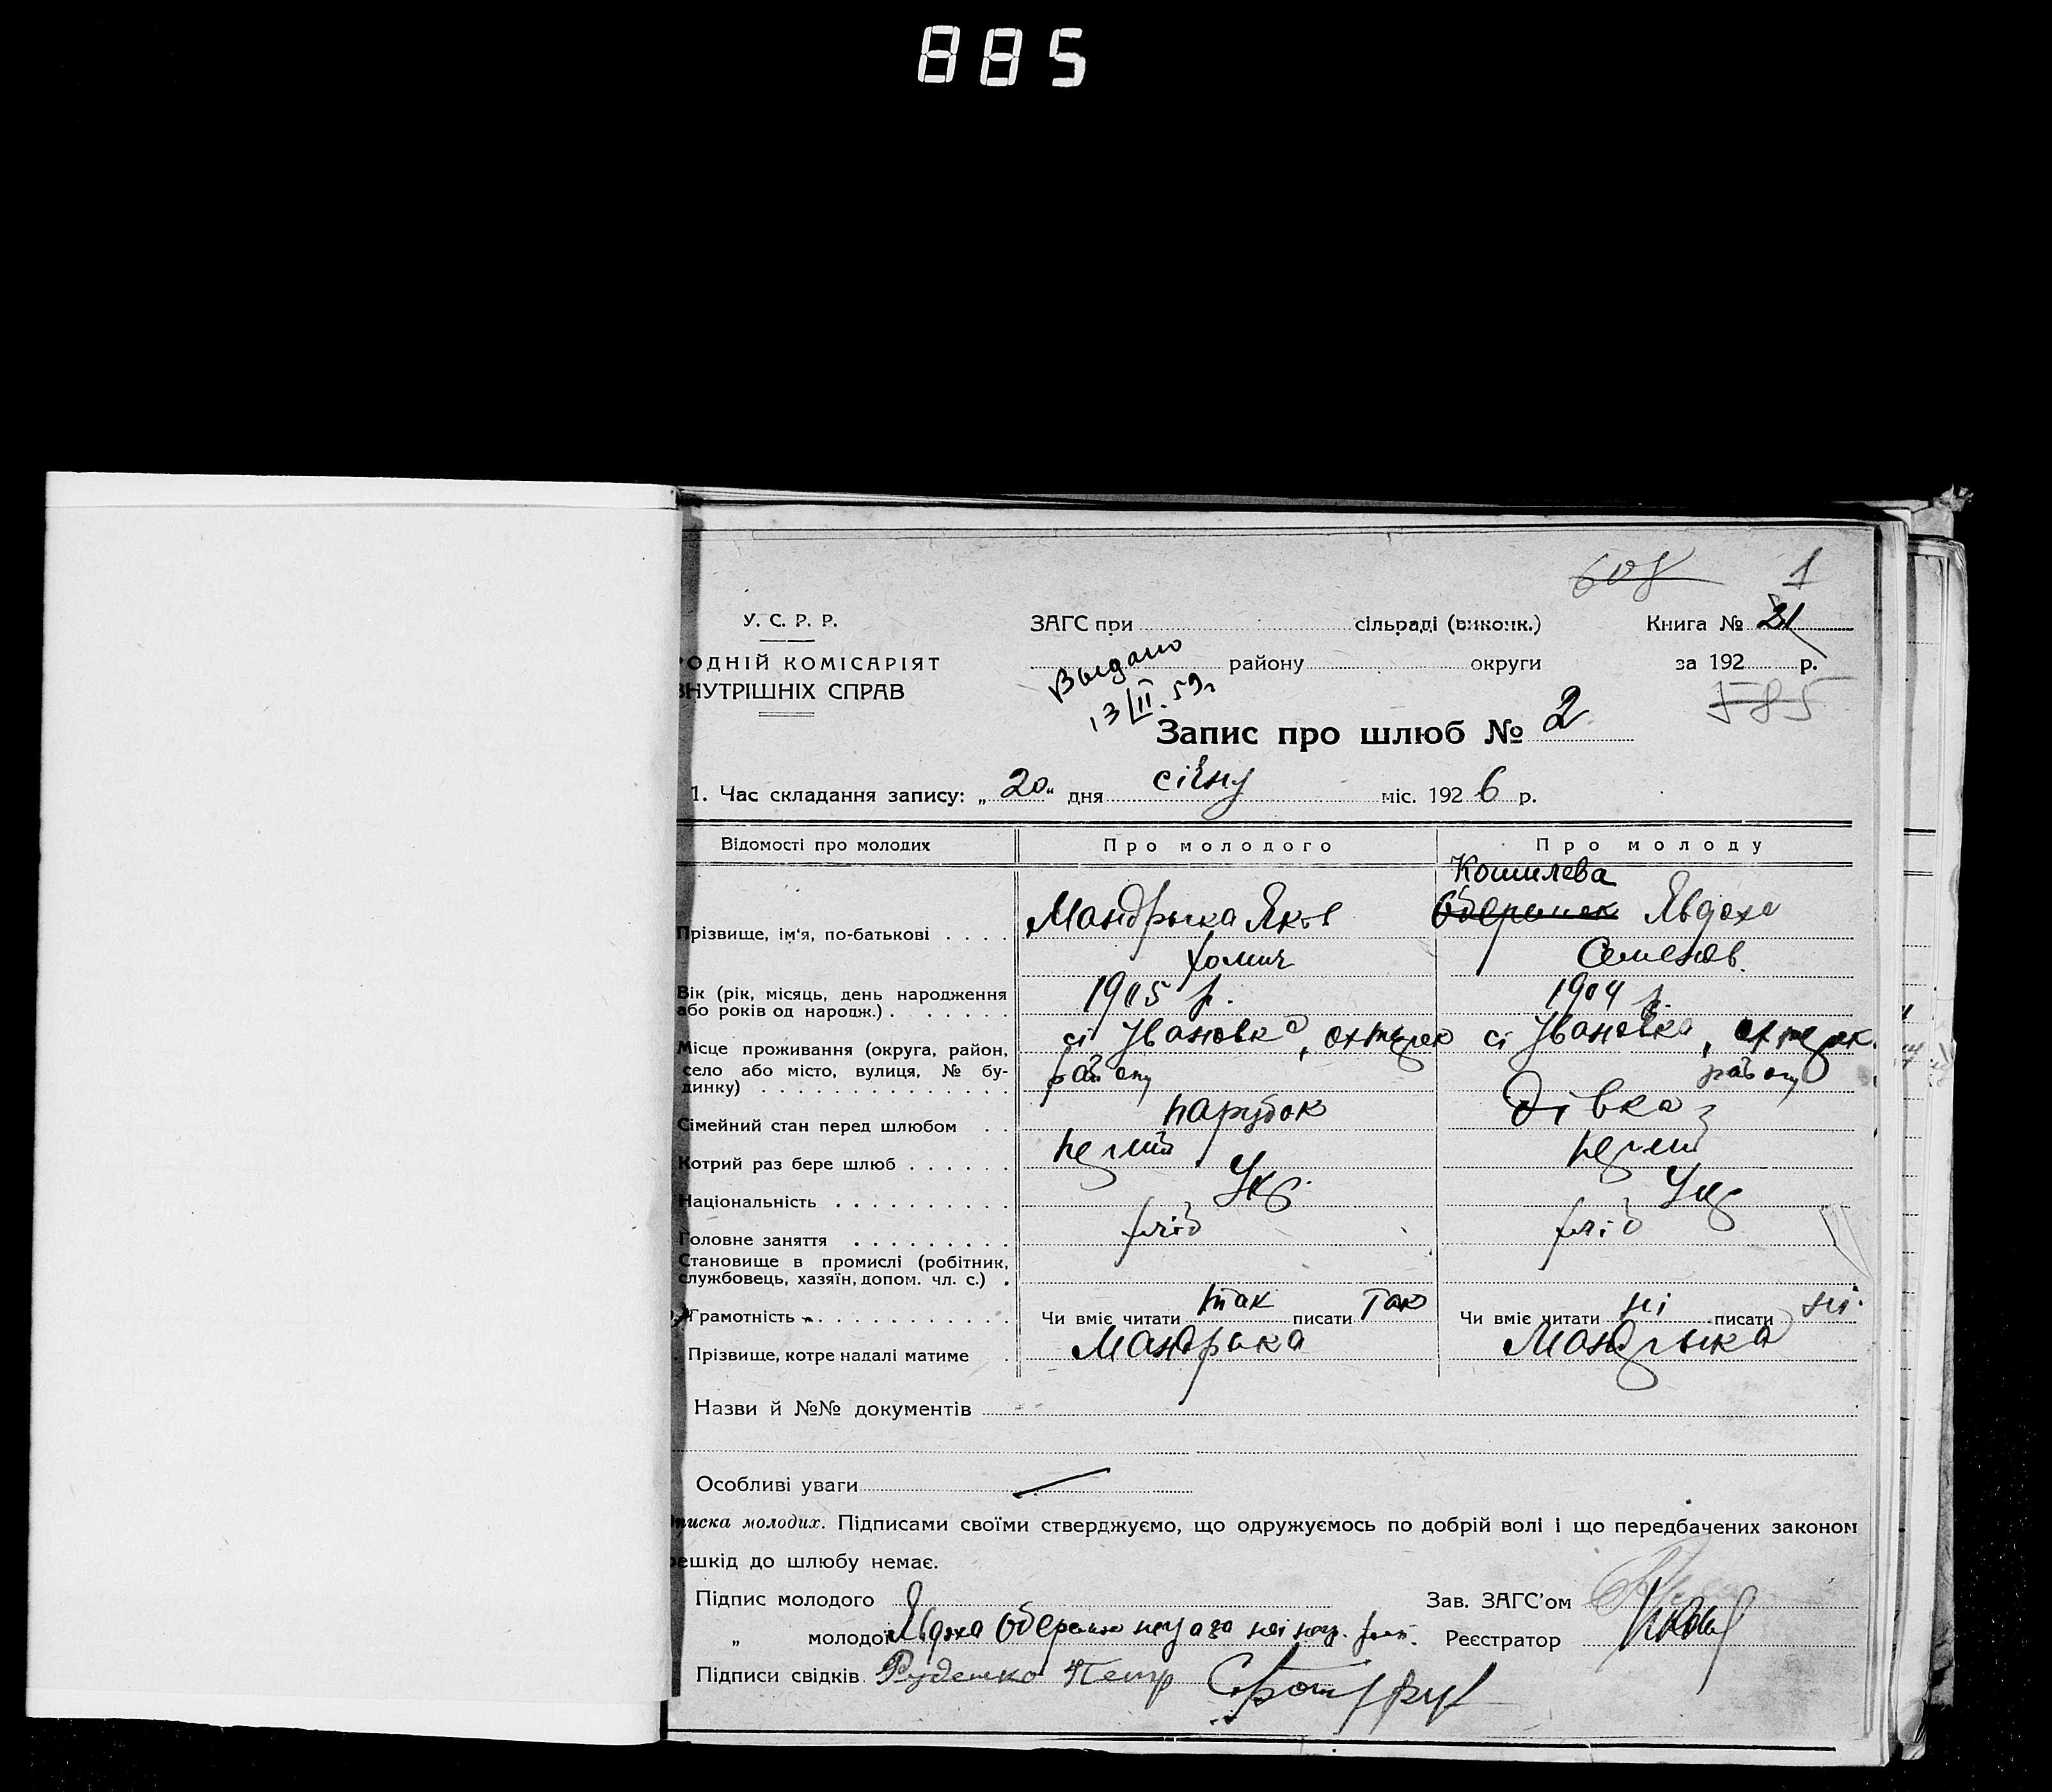 885
608
1
У. С. Р. Р.
ЗАГС при сільраді (виконк.)
Книга № 21
ОДНІЙ КОМІСАРІЯТ
району округи
за 192 р.
ВНУТРІШНІХ СПРАВ
Выдано
13/II.59г
585
Запис про шлюб № 2
1. Час складання запису: „20“ дня січну міс. 1926 р.
Відомості про молодих
Про молодого
Про молоду
Кошилева
Прізвище, ім'я, по-батькові . . . .
Мандрыка Яков
Явдоха
Хомич
Семенов.
Вік (рік, місяць, день народження
або років од народж.) . . . . . . .
1905 р.
1904 р.
Місце проживання (округа, район,
село або місто, вулиця, № бу-
динку) . . . . . . . . . . . . . .
сі Івановка, охтирек
району
сі Івановка, охтирек.
району
Сімейний стан перед шлюбом . .
парубок
дівка
Котрий раз бере шлюб . . . . . .
перший
перший
Національність . . . . . . . . . .
Укр.
Укр
Головне заняття . . . . . . . . .
хліб
хліб
Становище в промислі (робітник,
службовець, хазяїн, допом. чл. с.) .
Грамотність . . . . . . . . . . . .
Чи вміє читати так писати так
Чи вміє читати ні писати ні.
Прізвище, котре надалі матиме .
Мандрыка
Мандрыка
Назви й №№ документів
Особливі уваги
писка молодих. Підписами своїми стверджуємо, що одружуємось по добрій волі і що передбачених законом
решкід до шлюбу немає.
Підпис молодого
Зав. ЗАГС'ом
„ молодої Явдоха
Реєстратор
Підписи свідків Руденко Петр